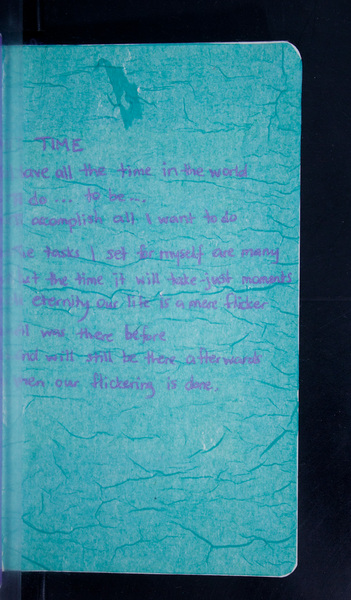 TIME
ave all the time in the world
do ... to be ...
acomplish all I want to do
e tasks I set for myself are many
ut the time it will take just moments
eternity our life is a mere flicker
it was there before
nd will still be there afterwards
hen our flickering is done.